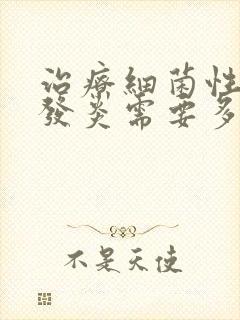 治療細菌性
發炎需要多
不是天使